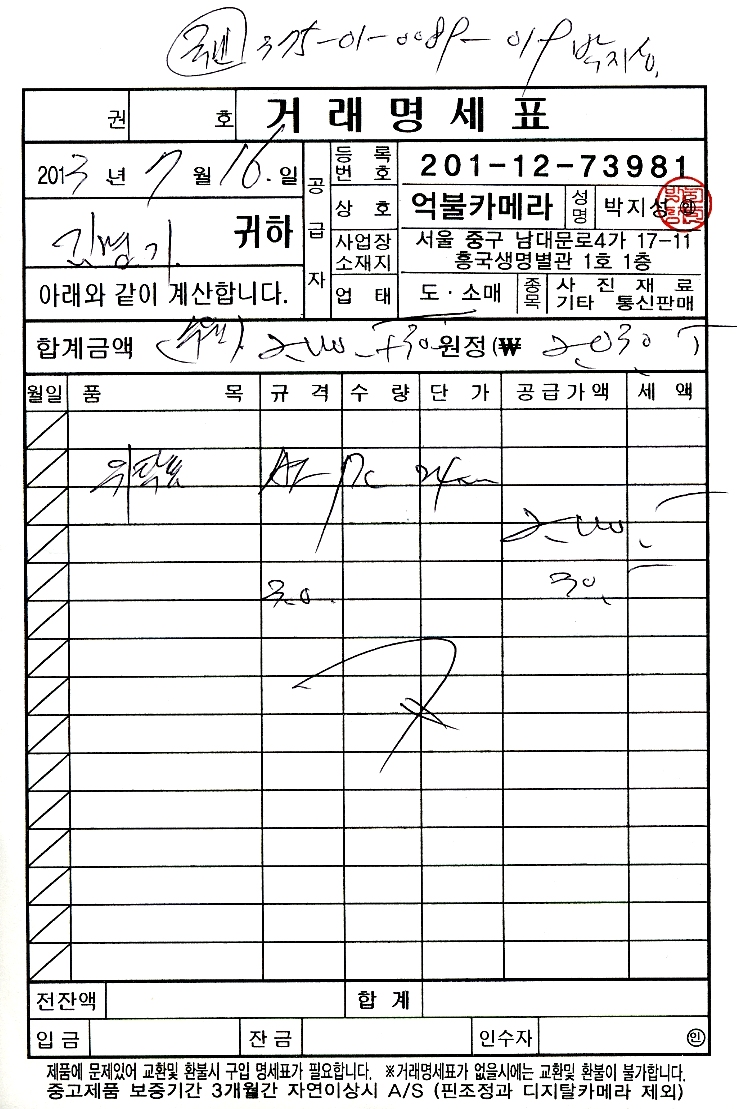 박지성
권 호 거래명세표
2013년 7월 16.일
공급자
등록번호 201-12-73981
상호 억불카메라 성명 박지성 ㊞
귀하
사업장소재지 서울 중구 남대문로4가 17-11
흥국생명별관 1호 1층
아래와 같이 계산합니다.
업태 도·소매 종목 사진재료
기타 통신판매
합계금액 원정(₩
월일 품목 규격 수량 단가 공급가액 세액
전잔액 합계
입금 잔금 인수자 ㊞
제품에 문제있어 교환및 환불시 구입 명세표가 필요합니다. ※거래명세표가 없을시에는 교환및 환불이 불가합니다.
중고제품 보증기간 3개월간 자연이상시 A/S (핀조정과 디지탈카메라 제외)